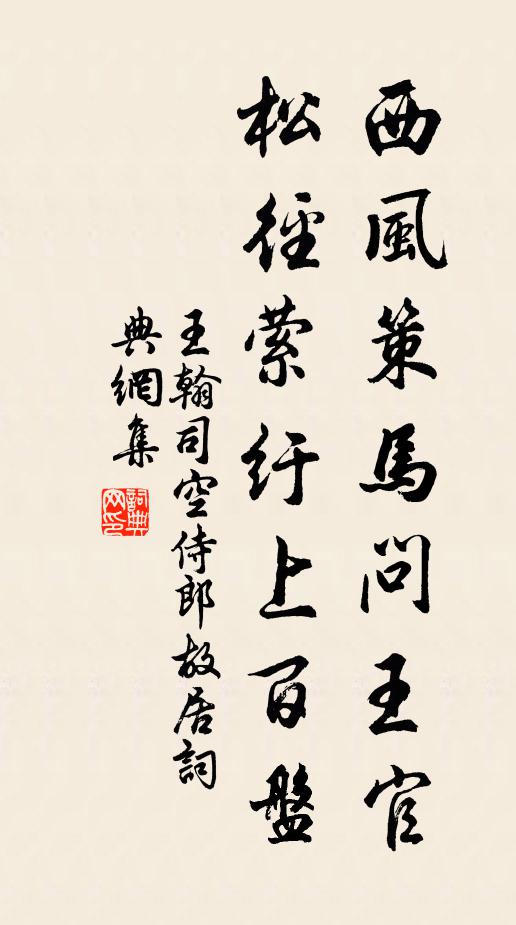 西風策馬問王官
松徑縈紆上百盤
王翰司空侍郎故居詞
典網集
詞典网印